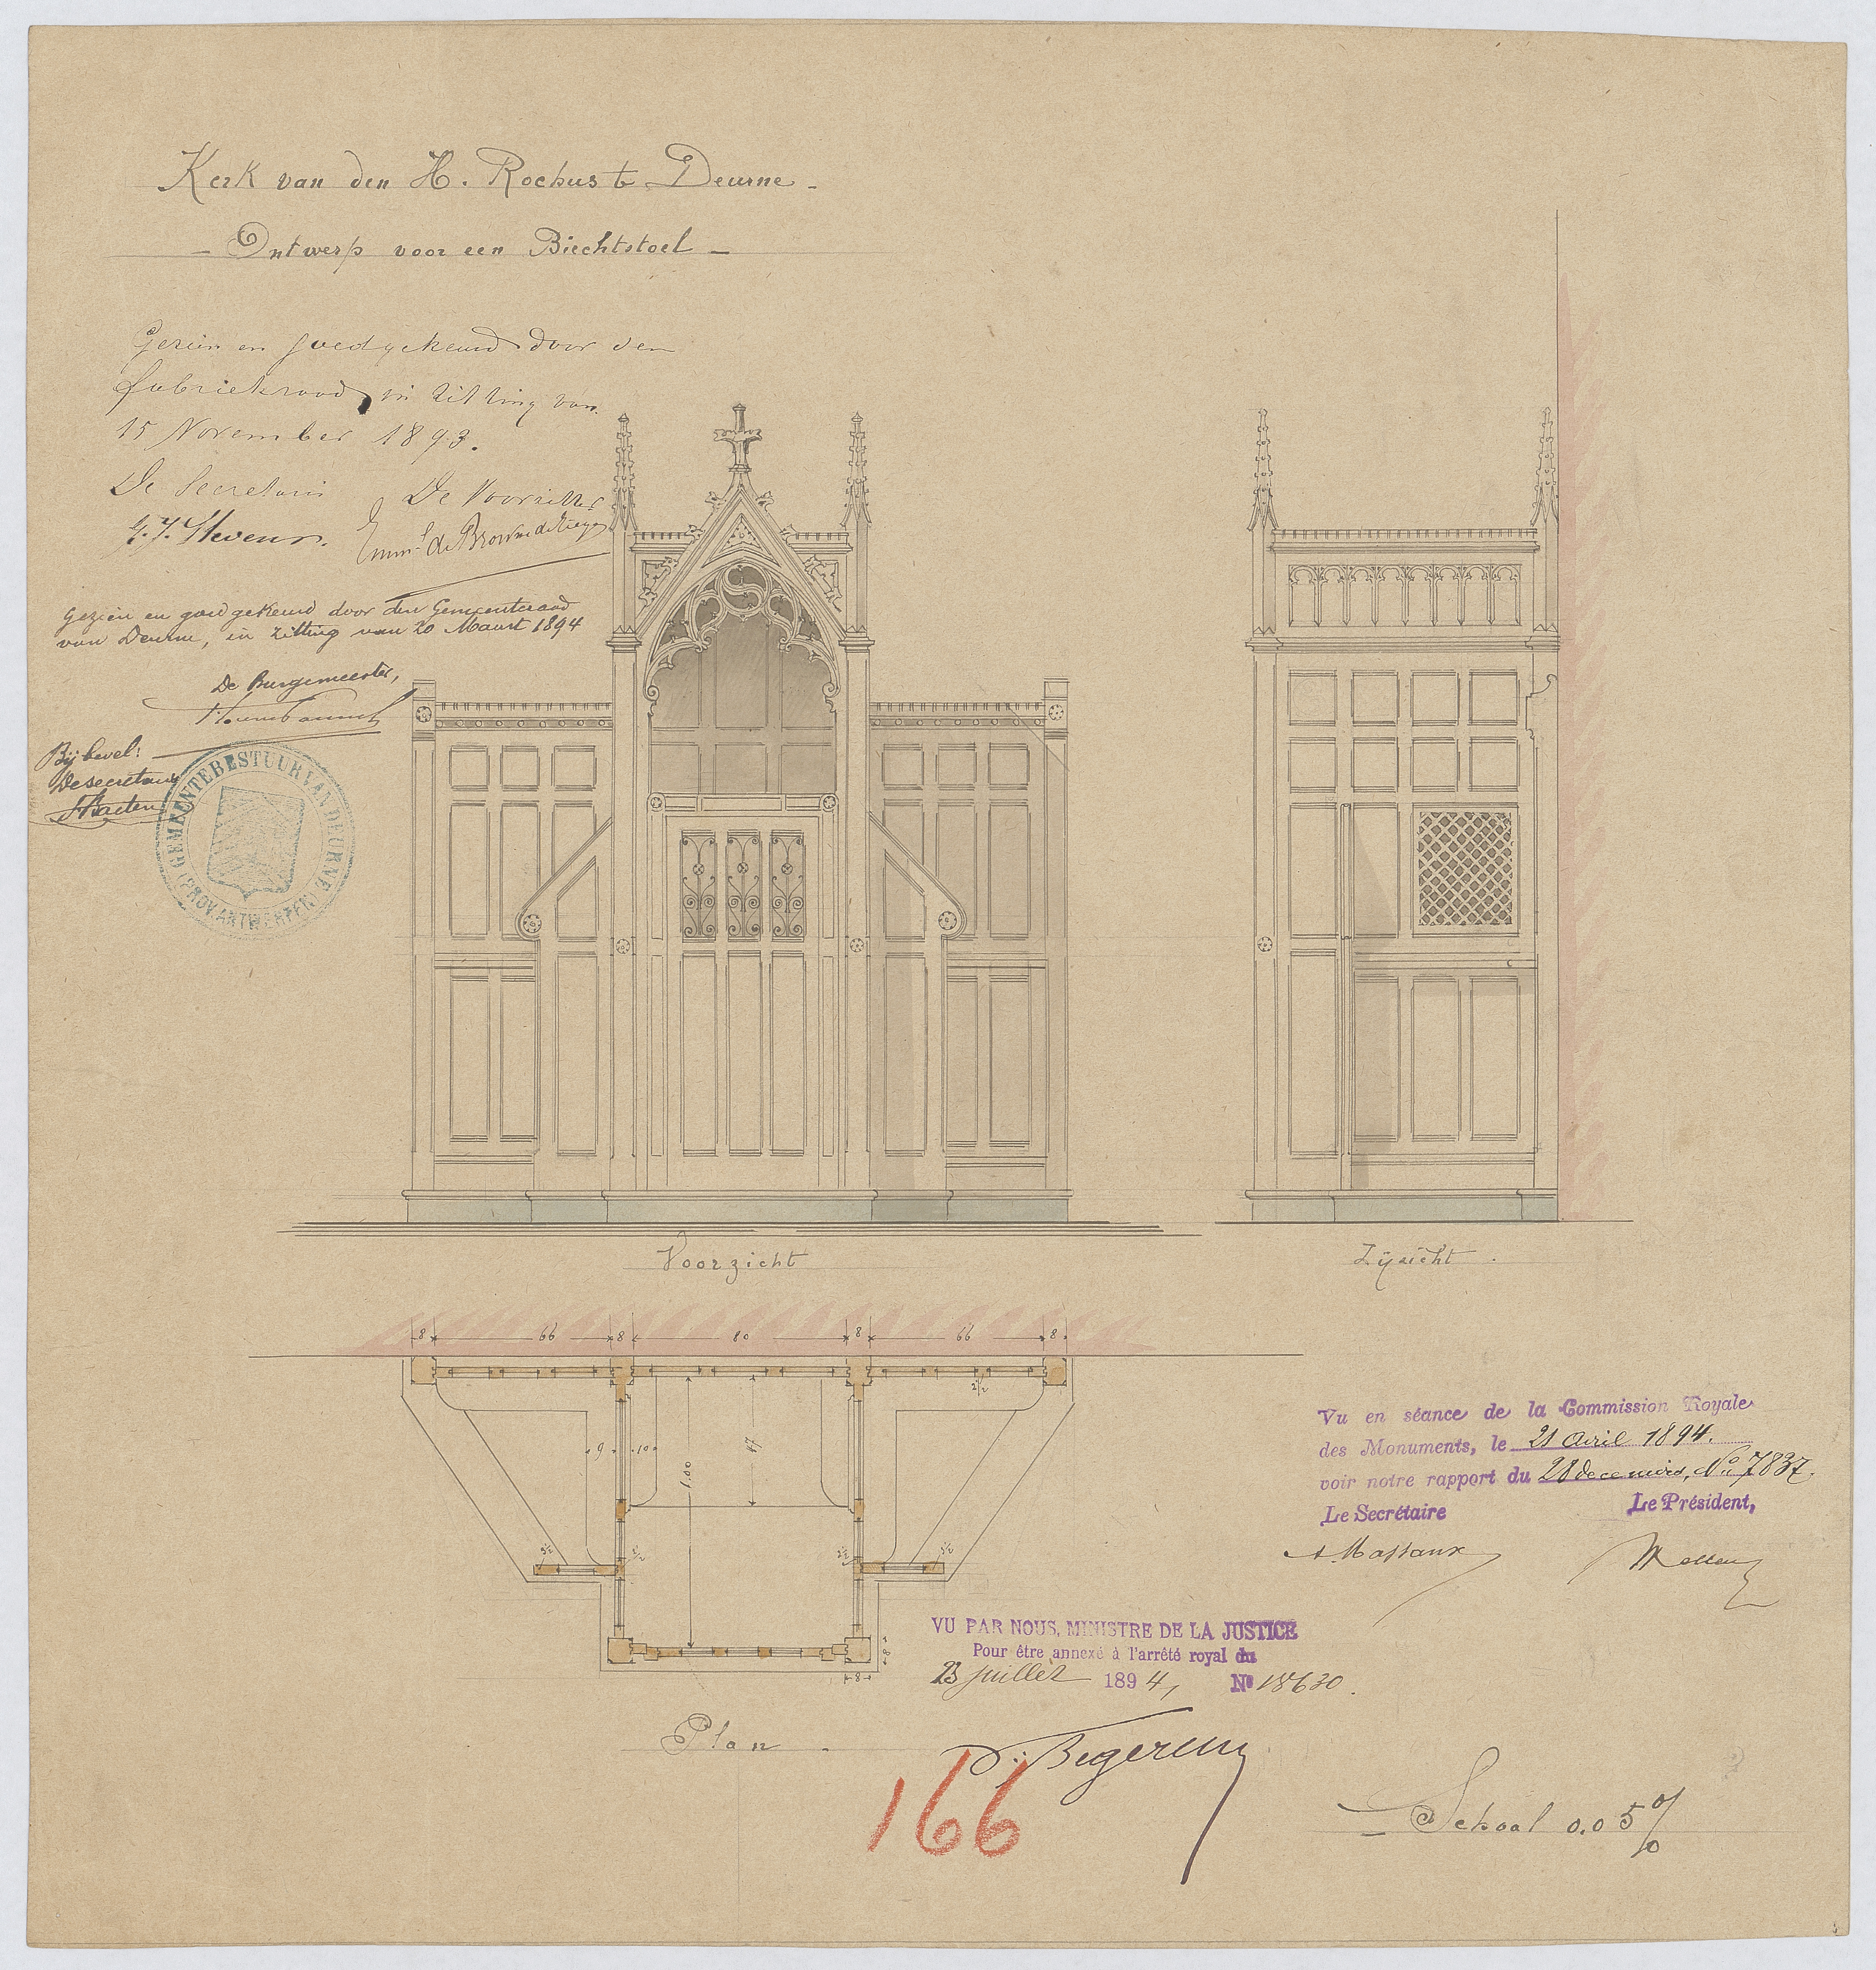 Kerk van den H. Rochus te Deurne -
- Ontwerp voor een Biechtstoel -
Gezien en goedgekeurd door den
fabriekraad in zitting van
15 November 1893.
De Secretaris De Voorzitter
G. J. Stevens. Emm.l de Browne de Tiège
Gezien en goedgekeurd door den Gemeenteraad
van Deurne, in zitting van 20 Maart 1894
De Burgemeester,
Bij bevel:
De secretaris
Baeten
GEMEENTEBESTUUR VAN DEURNE
(PROV. ANTWERPEN)
Voorzicht
Zijzicht .
8 66 8 80 8 66 8
2½
9 10 47
1.00
3½ 2½ 2½ 3½
8
8
Plan .
Vu en séance de la Commission Royale
des Monuments, le 21 Avril 1894.
voir notre rapport du 28 decembre, No. 7837.
Le Secrétaire Le Président,
A. Massaux
VU PAR NOUS, MINISTRE DE LA JUSTICE
Pour être annexé à l'arrêté royal du
23 juillet 1894, No 18630.
V. Begerem
166
- Schaal 0.05 %